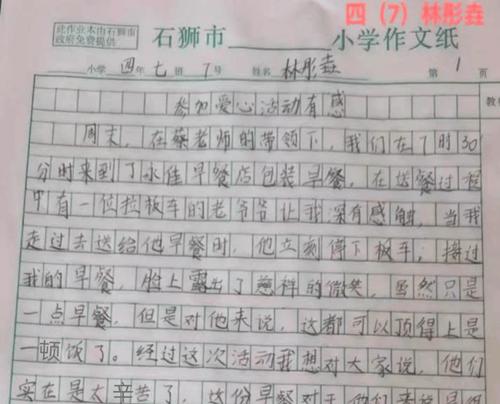 四（7）林彤垚
此作业本由石狮市
政府免费提供
石狮市________小学作文纸
小学 四 年 七 班 7 号 姓名 林彤垚 第 1 页
参加爱心活动有感
周末，在蔡老师的带领下，我们在7时30
分时来到了永佳早餐店包装早餐。在送餐过程
中有一位拉板车的老爷爷让我深有感触，当我
走过去送给他早餐时，他立刻停下板车，接过
我的早餐，脸上露出了慈祥的微笑，虽然只是
一点早餐，但是对他来说，这都可以顶得上是
一顿饭了。经过这次活动我想对大家说，他们
实在是太辛苦了，这份早餐对于他们来说是很